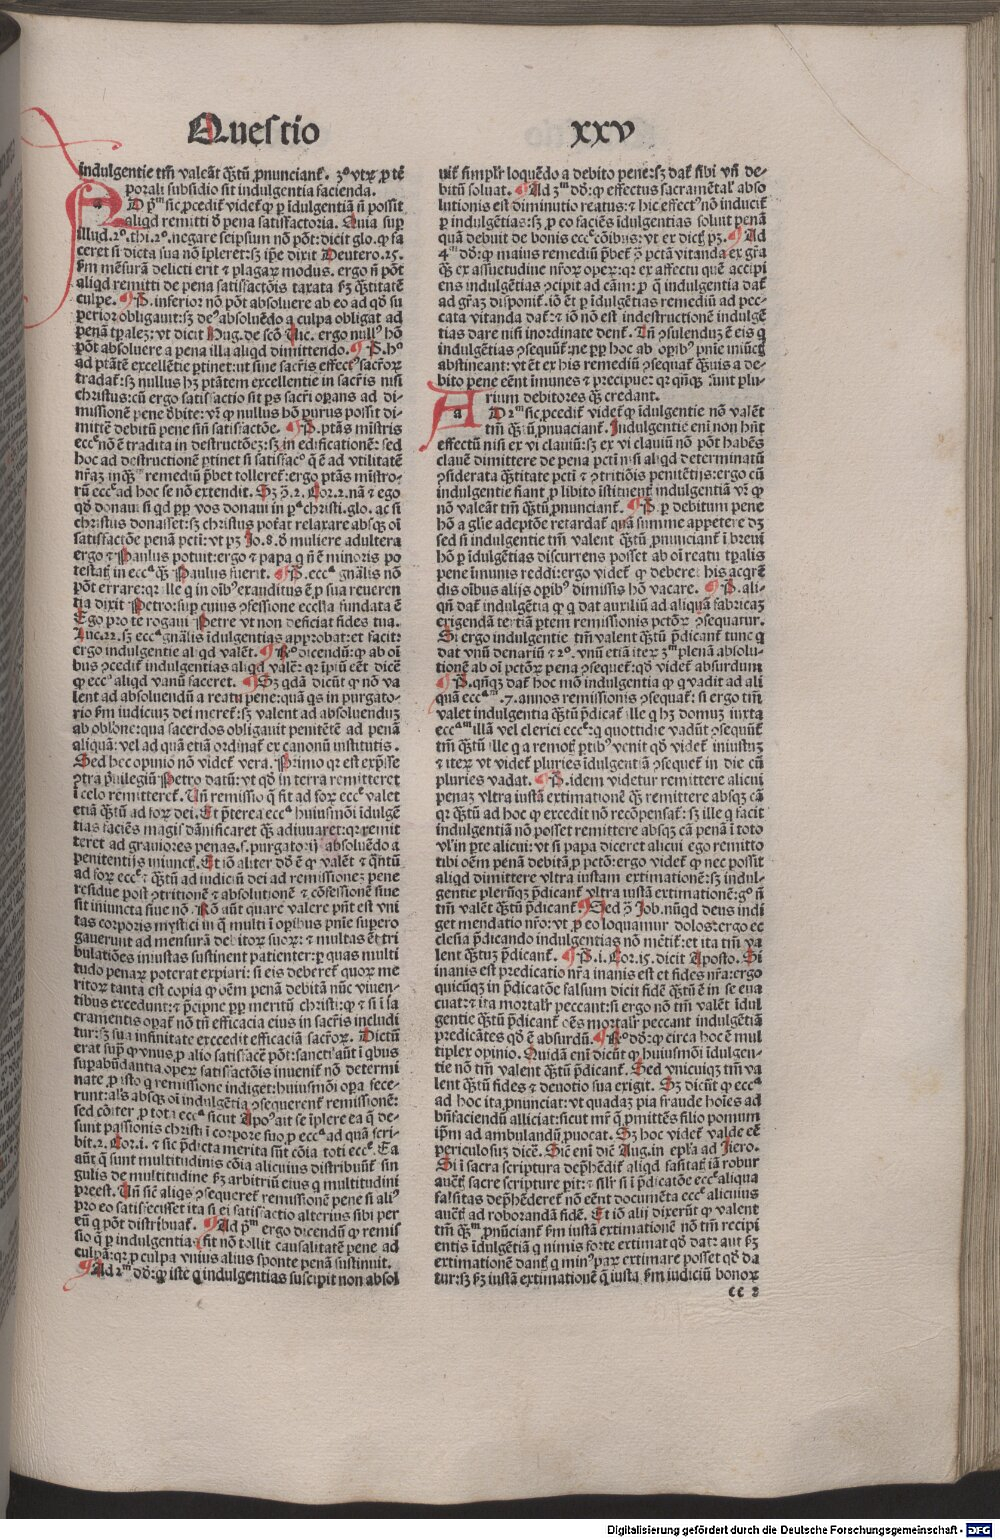 Questio xxv
indulgentie tm̄ valeāt q̄ꝫtū ꝓnunciant᷑. 3º vtꝝ ꝓ tē
porali subsidio sit indulgentia facienda.
AD p̄ᵐ sic ꝓcedit᷑ videt᷑ ꝙ ꝑ īdulgentiā n̄ possit
aliqd remitti ō pena satisfactoria. Quia suꝑ
illud .2º. thi .2º. negare seipsum nō pōt: dicit glo. ꝙ fa
ceret si dicta sua nō īpleret: sꝫ ip̄e dixit Deutero. 25.
ẜm mēsurā delicti erit ⁊ plagaꝝ modus. ergo n̄ pōt
aliqd remitti de pena satisfactōis taxata ẜm q̄ꝫtitatē
culpe. ¶ P. inferior nō pōt absoluere ab eo ad qd̄ su
perior obligauit: sꝫ deꝰ absoluēdo a culpa obligat ad
penā tꝑalez: vt dicit Hug. de scō Vic. ergo nullꝰ hō
pōt absoluere a pena illa aliqd dimittendo. ¶ P. hº
ad ptātē excellētie ꝑtinet: vt sine sacr̄is effectꝰ sacr̄oꝝ
tradat᷑: sꝫ nullus hꝫ ptātem excellentie in sacr̄is nisi
christus: cū ergo satisfactio sit ꝑs sacr̄i oꝑans ad di-
missionē pene ōbite: vr̄ ꝙ nullus hō purus possit di-
mittē debitū pene sin̄ satisfactōe. ¶ P. ptās mīstris
ecc̄ᵉ nō ē tradita in destructōez: sꝫ in edificationē: sed
hoc ad destructionē ꝑtinet si satisfacº q̄ ē ad vtilitatē
nr̄aꝫ inq̄ꝫᵐ remediū p̄bet tolleret᷑: ergo ptās mistro-
rū ecc̄ᵉ ad hoc se nō extendit. Sꝫ ↄ̄. 2. Cor. 2. nā ⁊ ego
qd̄ donaui si qd ꝓp vos donaui in ꝑᵃ christi. glo. ac si
christus donasset: sꝫ christus potat᷑ relaxare absqꝫ oī
satisfactōe penā pcti: vt pꝫ Jo. 8. ō muliere adultera
ergo ⁊ Paulus potuit: ergo ⁊ papa q n̄ ē minoris po
testat᷑ in ecc̄ᵃ q̄ꝫ Paulus fuerit. ¶ P. ecc̄ᵃ gn̄alis nō
pōt errare: qꝛ ille q in oīb' exauditus ē ꝓ sua reueren
tia dixit Petro: suꝑ cuius ↄfessione eccl̄ia fundata ē
Ego pro te rogaui Petre vt non deficiat fides tua.
Luc. 22. sꝫ ecc̄ᵃ gn̄alis īdulgentias approbat: et facit:
ergo indulgentie aliqd valēt. ¶ Rº dicendū: ꝙ ab oī
bus ↄcedit᷑ indulgentias aliqd valē᷑: qꝛ īpiū eēt dicē
ꝙ ecc̄ᵃ aliqd vanū faceret. ¶ Sꝫ qdā dicūt ꝙ nō va
lent ad absoluendū a reatu pene: quā qs in purgato-
rio ẜm iudiciuꝫ dei meret᷑: sꝫ valent ad absoluenduꝫ
ab obl̄one: qua sacerdos obligauit penitētē ad penā
aliquā: vel ad quā etiā ordinat᷑ ex canonū institutis.
Sed hec opinio nō videt᷑ vera. Primo qꝛ est exp̄sse
ↄtra p̄uilegiū Petro datū: vt qd̄ in terra remitteret
ī celo remitteret᷑. Un̄ remissio q̄ fit ad foꝝ ecc̄ᵉ valet
etiā q̄ꝫtū ad foꝝ dei. Et p̄terea ecc̄ᵃ huiusmōi īdulgē
tias faciēs magis dānificaret q̄ꝫ adiuuaret: qꝛ remit
teret ad grauiores penas. s. purgatorij absoluēdo a
penitentijs iniunct᷑. Et iō aliter dō ē ꝙ valēt ⁊ q̄ntū
ad foꝝ ecc̄ᵉ ⁊ q̄ꝫtū ad iudiciū dei ad remissionez pene
residue post ↄtritionē ⁊ absolutionē ⁊ cōfessionē siue
sit iniuncta siue nō. Rō aūt quare valere pn̄t est vni
tas corporis mystici in q̄ multi ī oꝑibus pn̄ie supero
gauerunt ad mensurā debitoꝝ suoꝝ: ⁊ multas ēt tri
bulatiōes iniustas sustinent patienter: ꝑ quas multi
tudo penaꝝ poterat expiari: si eis deberet᷑ quoꝝ me
ritoꝝ tanta est copia ꝙ oēm penā debitā nūc viuen-
tibus excedunt: ⁊ p̄cipue ꝓp meritū christi: ꝙ ⁊ si ī sa
cramentis oꝑat᷑ nō tn̄ efficacia eius in sacr̄is includi
tur: sꝫ sua infinitate excedit efficaciā sacr̄oꝝ. Dictū
erat supꝰ ꝙ vnus ꝓ alio satisfacē pōt: sancti aūt ī qbus
suꝑabūdantia oꝑeꝝ satisfactōis inuenit᷑ nō determi
nate ꝓ isto q remissione indiget: huiusmōi oꝑa fece-
runt: al̄s absqꝫ oī indulgētia ↄsequerent᷑ remissionē:
sed cōiter ꝓ tota ecc̄ᵃ sicut Apo'ait se īplere ea q̄ de-
sunt passionis christi ī corpore suo ꝓ ecc̄ᵃ ad quā scri-
bit. 2. Cor. i. ⁊ sic p̄dicta merita sūt cōia toti ecc̄ᵉ. Ea
aūt q̄ sunt multitudinis cōia alicuius distribuūt᷑ sin
gulis de multitudine ẜm arbitriū eius q multitudini
preest. Un̄ sic̄ aliqs ↄsequeret᷑ remissionē pene si aliꝰ
pro eo satisfecisset ita si ei satisfactio alterius sibi per
eū q pōt distribuat᷑. ¶ Ad pᵐ ergo dicendū ꝙ remis
sio q̄ ꝑ indulgentias fit nō tollit causalitatē pene ad
culpā: qꝛ ꝓ culpa vnius alius sponte penā sustinuit.
¶ Ad 2ᵐ dō: ꝙ iste q indulgentias suscipit non absol
uit᷑ simpl̄r loquēdo a debito pene: sꝫ dat᷑ sibi vn̄ de-
bitū soluat. ¶ Ad 3ᵐ dō: ꝙ effectus sacramētal᷑ abso
lutionis est diminutio reatus: ⁊ hic effectꝰ nō inducit᷑
ꝑ indulgētias: sꝫ ꝓ eo faciēs īdulgentias soluit penā
quā debuit de bonis ecc̄ᵉ cōibus: vt ex dict᷑ pꝫ. ¶ Ad
4ᵐ dō: ꝙ maius remediū p̄bet᷑ ↄ̄ pctā vitanda ex gr̄a
q̄ꝫ ex assuetudine nr̄oꝝ oꝑeꝝ: qꝛ ex affectu quē accipi
ens indulgētias ↄcipit ad cām: ꝓ q̄ indulgentia dat᷑
ad gr̄aꝫ disponit᷑. iō ēt ꝑ īdulgētias remediū ad pec-
cata vitanda dat᷑: ⁊ iō nō est indestructionē indulgē
tias dare nisi inordinate dent᷑. Tn̄ ↄsulenduꝫ ē eis q
indulgētias ↄsequūt᷑: ne ꝓp hoc ab oꝑib' pn̄ie iniūct᷑
abstineant: vt ēt ex his remediū ↄsequāt᷑ q̄ꝫuis a de-
bito pene eēnt īmunes ⁊ precipue: qꝛ qn̄qꝫ sunt plu-
rium debitores q̄ꝫ credant.
AD 2ᵐ sic ꝓcedit᷑ videt᷑ ꝙ īdulgentie nō valēt
tm̄ q̄ꝫtū ꝓnūciant᷑. Indulgentie enī non hn̄t
effectū nisi ex vi clauiū: sꝫ ex vi clauiū nō pōt habēs
clauē dimittere de pena pcti nisi aliqd determinatū
ↄsiderata q̄ꝫtitate pcti ⁊ ↄtritiōis penitētis: ergo cū
indulgentie fiant ꝓ libito īstituent᷑ indulgentiā vr̄ ꝙ
nō valeāt tm̄ q̄ꝫtū ꝓnunciant᷑. ¶ P. ꝑ debitum pene
hō a gl̄ie adeptōe retardat᷑ quā summe appetere dꝫ
sed si indulgentie tm̄ valent q̄ꝫtū ꝓnunciant᷑ ī breui
hō ꝑ īdulgētias discurrens posset ab oī reatu tꝑalis
pene īmunis reddi: ergo videt᷑ ꝙ deberet his acqrē
dis oībus alijs oꝑib' dimissis hō vacare. ¶ P. ali-
qn̄ dat᷑ indulgētia ꝙ q dat auxiliū ad aliquā fabricaꝫ
erigendā tertiā ꝑtem remissionis pctōꝝ ↄsequatur.
Si ergo indulgentie tm̄ valent q̄ꝫtū p̄dicant᷑ tunc q
dat vnū denariū ⁊ 2º. vnū etiā iteꝝ 3ᵐ plenā absolu-
tionē ab oī pctōꝝ pena ↄsequet᷑: qd̄ videt᷑ absurdum
¶ P. qn̄qꝫ dat᷑ hoc mō indulgentia ꝙ q vadit ad ali
quā ecc̄ᵃᵐ .7. annos remissionis ↄsequat᷑: si ergo tm̄
valet indulgentia q̄ꝫtū p̄dicat᷑ ille q hꝫ domuꝫ iuxta
ecc̄ᵃᵐ illā vel clerici ecc̄ᵉ: q quottidie vadūt ↄsequūt᷑
tm̄ q̄ꝫtū ille q a remot᷑ ꝑtib' venit qd̄ videt᷑ iniustuꝫ
⁊ iteꝝ vt videt᷑ pluries īdulgentiā ↄsequet᷑ in die cū
pluries vadat. ¶ P. idem videtur remittere alicui
penaꝫ vltra iustā extimationē q̄ꝫ remittere absqꝫ cā
qꝛ q̄ꝫtū ad hoc ꝙ excedit nō recōpensat᷑: sꝫ ille q facit
indulgentiā nō posset remittere absqꝫ cā penā ī toto
vl̄ in ꝑte alicui: vt si papa diceret alicui ego remitto
tibi oēm penā debitā ꝓ pctō: ergo videt᷑ ꝙ nec possit
aliqd dimittere vltra iustam extimationē: sꝫ indul-
gentie plerūqꝫ p̄dicant᷑ vltra iustā extimationē: gº n̄
tm̄ valēt q̄ꝫtū p̄dicant᷑. ¶ Sed ↄ̄ Job. nūqd deus indi
get mendatio nr̄o: vt ꝓ eo loquamur dolos: ergo ec
clesia p̄dicando indulgentias nō mētit᷑: et ita tm̄ va
lent q̄ꝫtuꝫ p̄dicant᷑. ¶ P. i. Cor. 15. dicit Aposto. Si
inanis est predicatio nr̄a inanis est et fides nr̄a: ergo
quicūqꝫ in p̄dicatōe falsum dicit fidē q̄ꝫtū ē in se eua
cuat: ⁊ ita mortal᷑r peccant: si ergo nō tm̄ valēt īdul
gentie q̄ꝫtū p̄dicant᷑ oēs mortal᷑r peccant indulgētiā
predicātes qd̄ ē absurdū. ¶ Rº dō: ꝙ circa hoc ē mul
tiplex opinio. Quidā enī dicūt ꝙ huiusmōi īdulgen-
tie nō tm̄ valent q̄ꝫtū p̄dicant᷑. Sed vnicuiqꝫ tm̄ va
lent q̄ꝫtū fides ⁊ deuotio sua exigit. Sꝫ dicūt ꝙ ecc̄ᵃ
ad hoc ita ꝓnunciat: vt quadaꝫ pia fraude hoīes ad
bn̄faciendū alliciat: sicut mr̄ q̄ ꝓmittēs filio pomum
ip̄m ad ambulandū ꝓuocat. Sꝫ hoc videt᷑ valde eē
periculosuꝫ dicē. Sic̄ enī dic̄ Aug. in ep̄la ad Jero.
Si ī sacra scriptura dep̄hēdit᷑ aliqd falsitat᷑ iā robur
auct᷑ sacre scripture ꝑit: ⁊ sil̄r si ī p̄dicatōe ecc̄ᵉ aliqua
falsitas dep̄hēderet᷑ nō eēnt documēta ecc̄ᵉ alicuius
auct᷑ ad roborandā fidē. Et iō alij dixerūt ꝙ valent
tm̄ q̄ꝫᵐ ꝓnūciant᷑ ẜm iustā extimationē nō tm̄ recipi
entis īdulgētiā q nimis forte extimat qd̄ dat: aut ẜm
extimationē dant᷑ q minꝰ paꝝ extimare posset qd̄ da
tur: sꝫ ẜm iustā extimationē q̄ iusta ẜm iudiciū bonoꝝ
cc 2
Digitalisierung gefördert durch die Deutsche Forschungsgemeinschaft - DFG